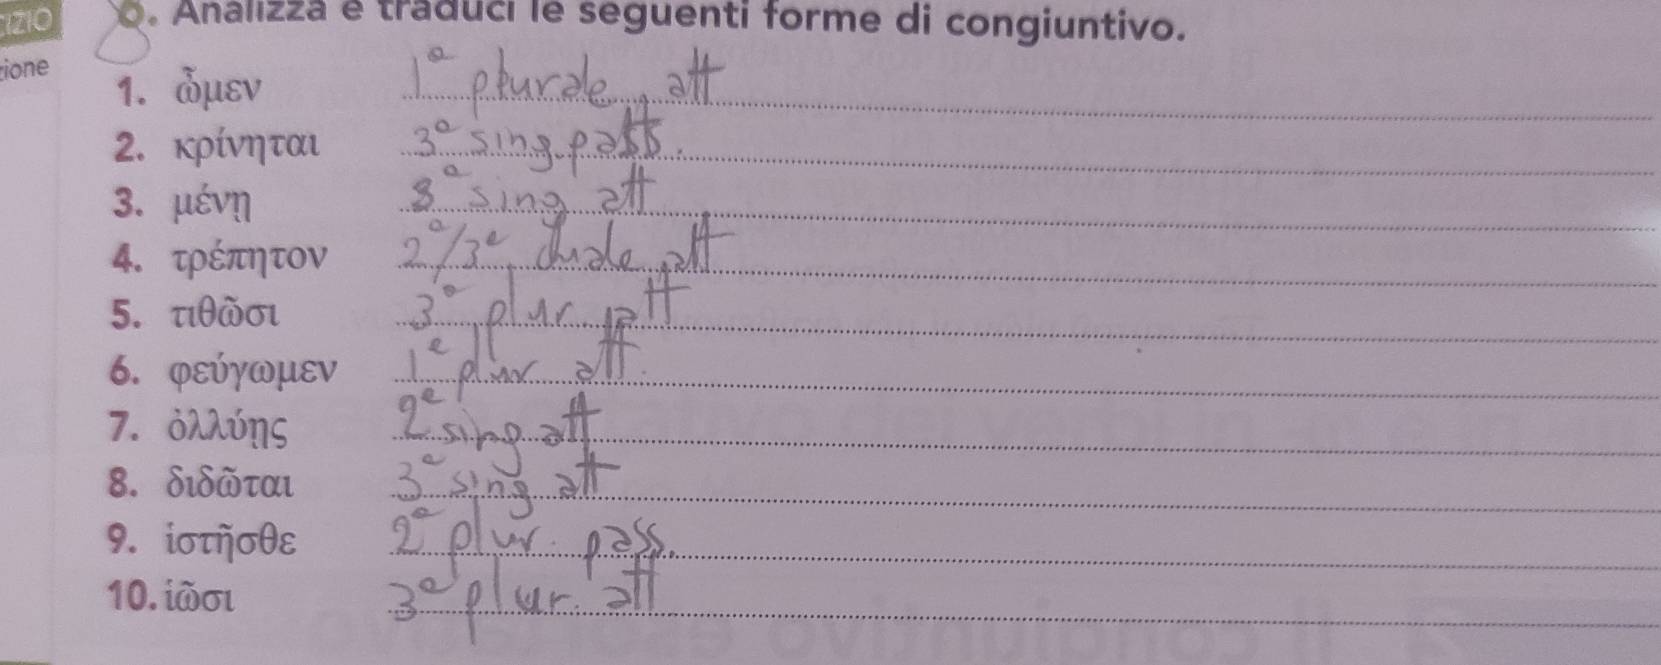 IZIO 6. Analizza e traduci le seguenti forme di congiuntivo.
8
zione
1. ὦμεν 1ª plurale, att
2. κρίνηται 3ª sing. pass.
3. μένῃ 3ª sing att
4. τρέπητον 2ª/3ª duale, att
5. τιθῶσι 3ª plur. att
6. φεύγωμεν 1ª plur att.
7. ὀλλύῃς 2ª sing att
8. διδῶται 3ª sing att
9. ἱστῆσθε 2ª plur. pass.
10. ἱῶσι 3ª plur. att